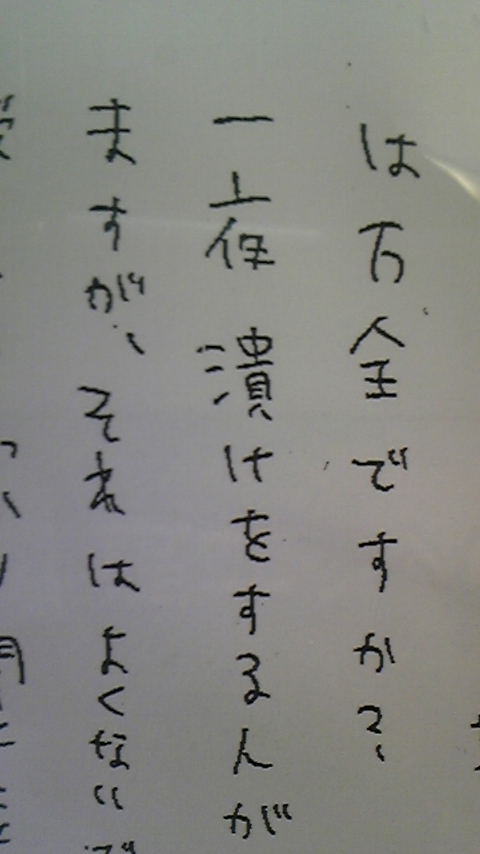 は万全ですか?
一夜漬けをする人が
ますが、それはよくないで